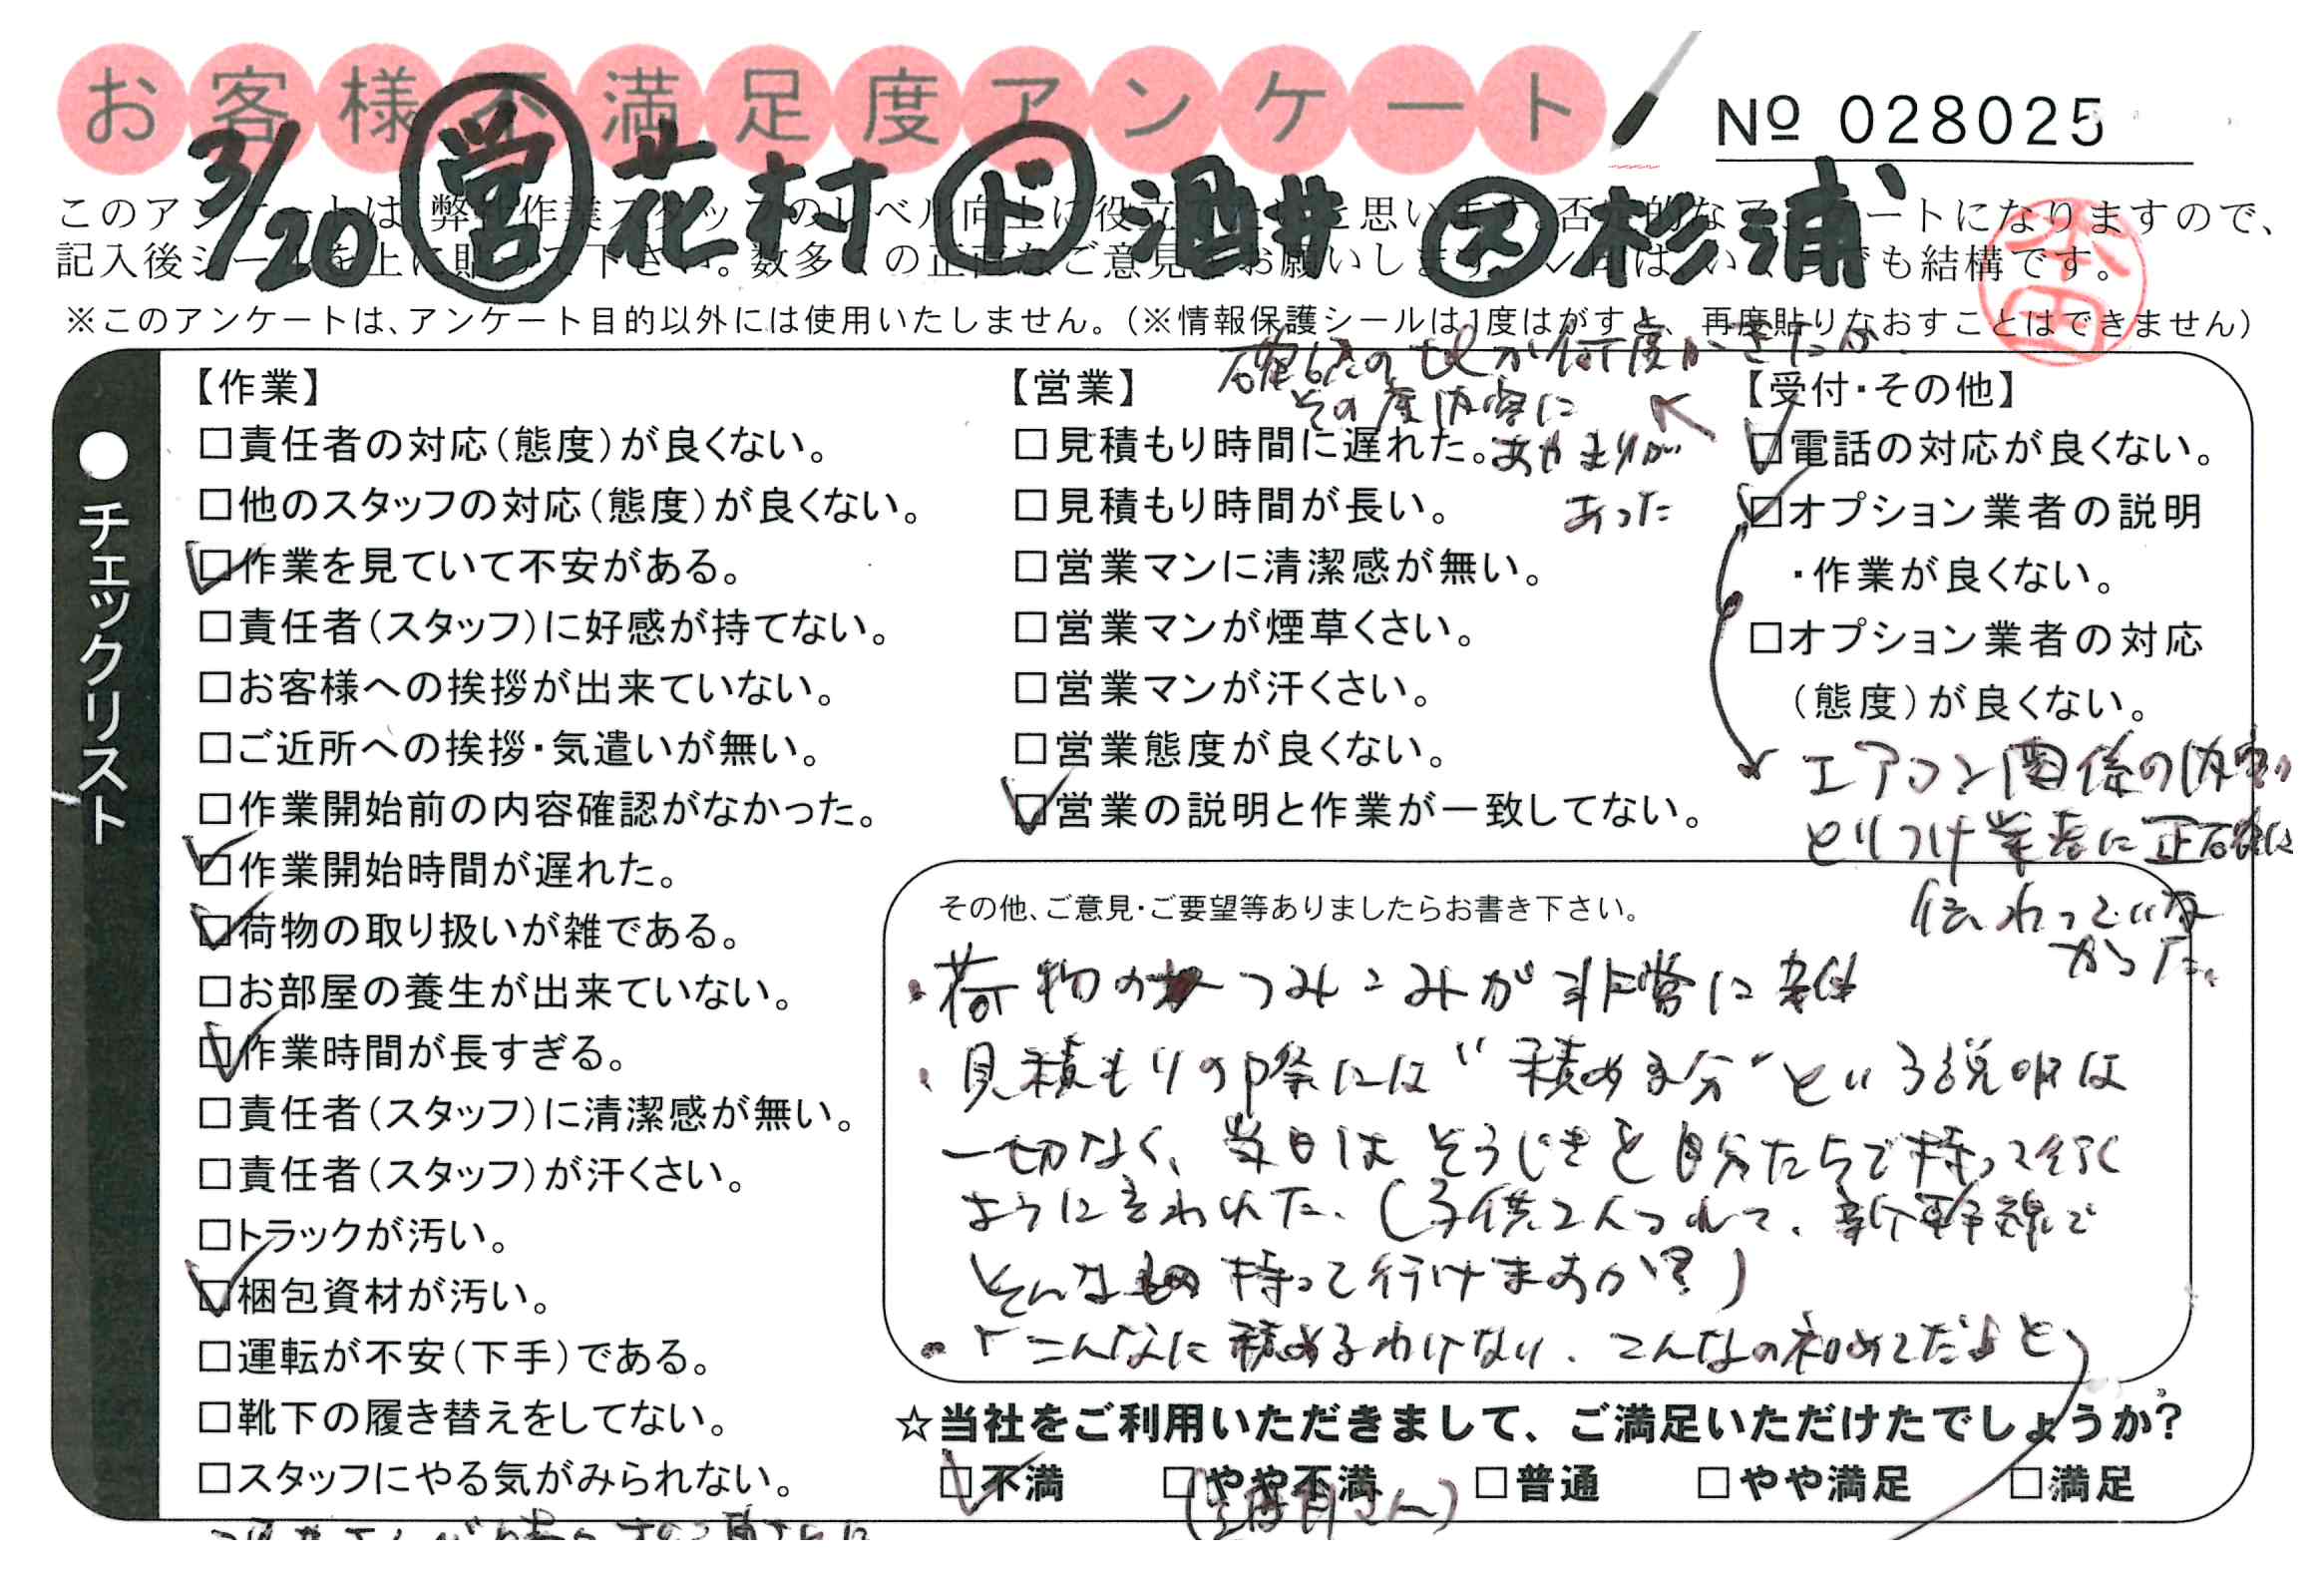 お客様不満足度アンケート
№ 028025
3/20 営 花村 ド 酒井 ス 杉浦
このアンケートは、弊社作業スタッフのレベル向上に役立てたいと思います。否定的なアンケートになりますので、
記入後シールを上に貼って下さい。数多くの正直なご意見をお願いします。ペン回はいくつでも結構です。
※このアンケートは、アンケート目的以外には使用いたしません。(※情報保護シールは1度はがすと、再度貼りなおすことはできません)
本田
チェックリスト
【作業】
□責任者の対応(態度)が良くない。
□他のスタッフの対応(態度)が良くない。
☑作業を見ていて不安がある。
□責任者(スタッフ)に好感が持てない。
□お客様への挨拶が出来ていない。
□ご近所への挨拶・気遣いが無い。
□作業開始前の内容確認がなかった。
☑作業開始時間が遅れた。
☑荷物の取り扱いが雑である。
□お部屋の養生が出来ていない。
☑作業時間が長すぎる。
□責任者(スタッフ)に清潔感が無い。
□責任者(スタッフ)が汗くさい。
□トラックが汚い。
☑梱包資材が汚い。
□運転が不安(下手)である。
□靴下の履き替えをしてない。
□スタッフにやる気がみられない。
【営業】
□見積もり時間に遅れた。
□見積もり時間が長い。
□営業マンに清潔感が無い。
□営業マンが煙草くさい。
□営業マンが汗くさい。
□営業態度が良くない。
☑営業の説明と作業が一致してない。
確認の℡が何度かきたが
その度内容に
あやまりが
あった
【受付・その他】
☑電話の対応が良くない。
☑オプション業者の説明
・作業が良くない。
□オプション業者の対応
(態度)が良くない。
エアコン関係の内容が
とりつけ業者に正確に
伝わっていな
かった。
その他、ご意見・ご要望等ありましたらお書き下さい。
・荷物のつみこみが非常に雑
・見積もりの際には"積める分"という説明は
一切なく、当日はそうじきを自分たちで持って行く
ように言われた。(子供2人つれて、新幹線で
そんなもの持って行けますか?)
・「こんなに積めるわけない、こんなの初めてだよと
☆当社をご利用いただきまして、ご満足いただけたでしょうか?
☑不満 □やや不満 □普通 □やや満足 □満足